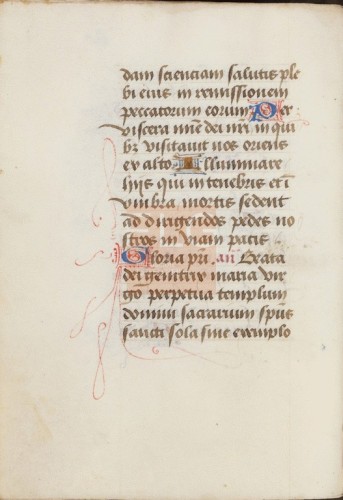 dam scienciam salutis ple
bi eius in remissionem
peccatorum eorum Per
viscera mīe dei nrī in qui
bꝫ visitavit nos oriens
ex alto Illuminare
hijs qui in tenebris et ī
vmbra mortis sedent
ad dirigendos pedes no
stros in viam pacis
Gloria prī. an Beata
dei genitrix maria vir
go perpetua templum
domini sacrarium spūs
sancti sola sine exemplo